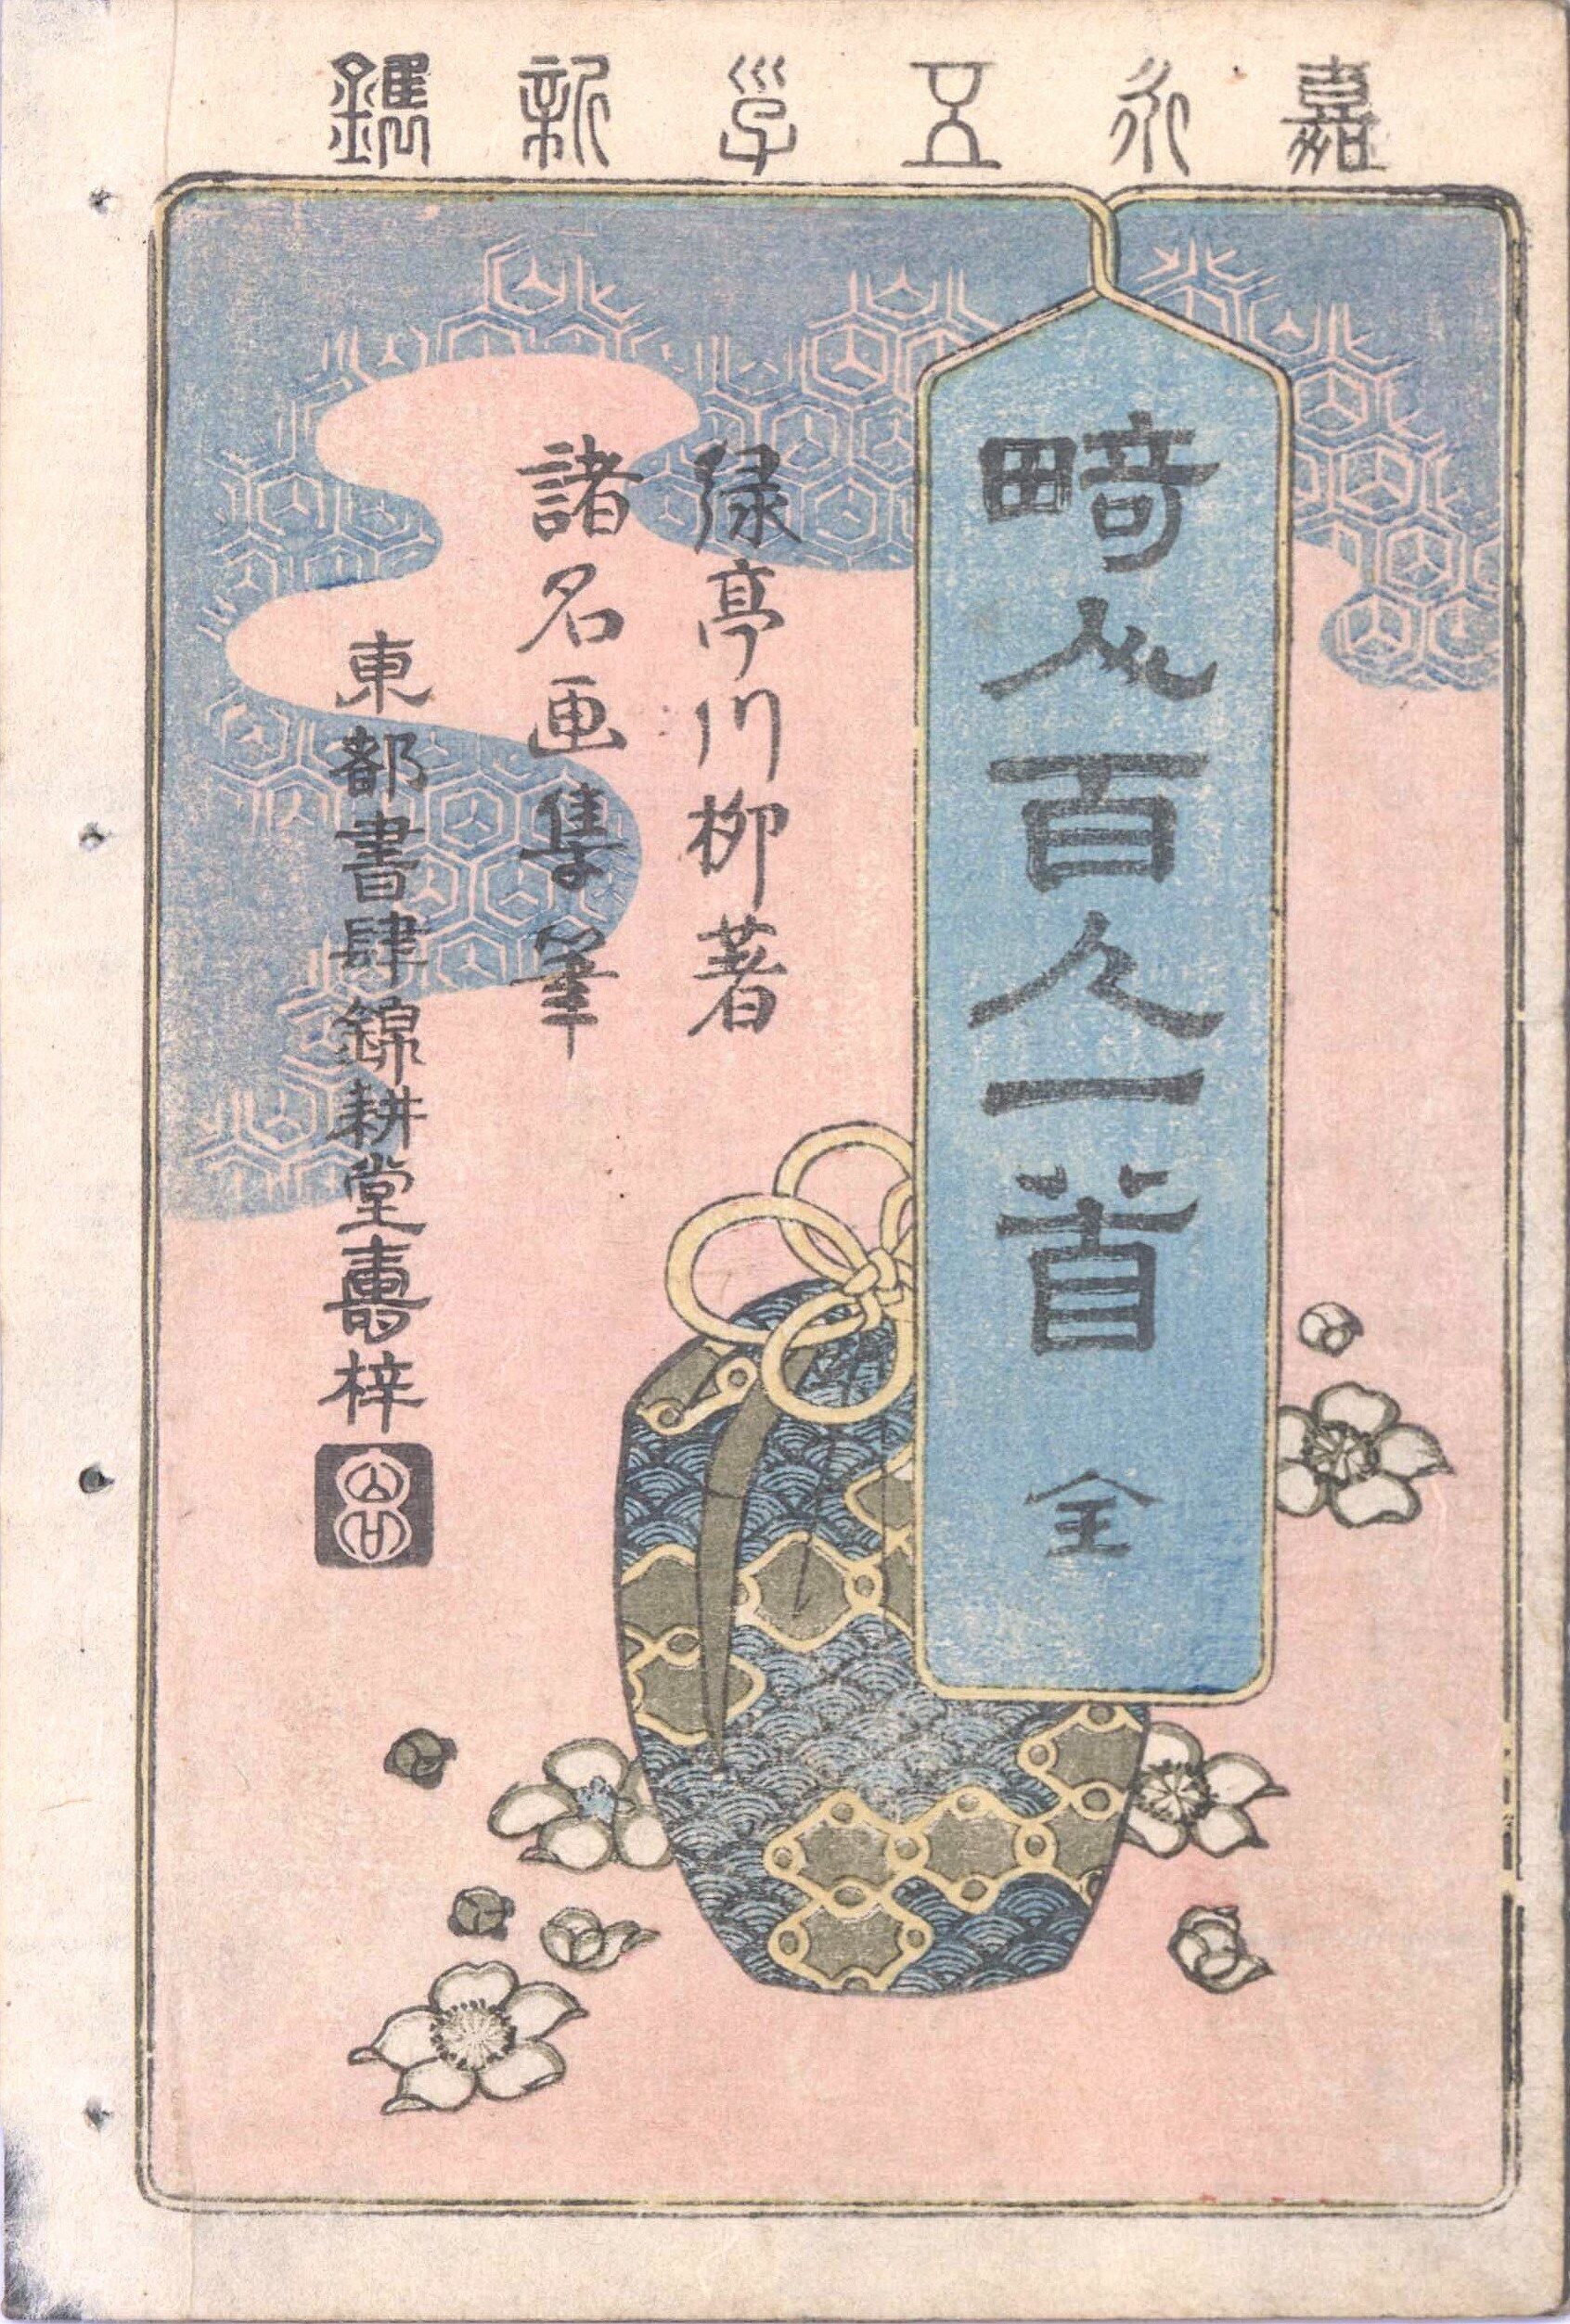 嘉永五子新鐫
畸人百人一首 全
緑亭川柳著
諸名画集筆
東都書肆錦耕堂壽梓